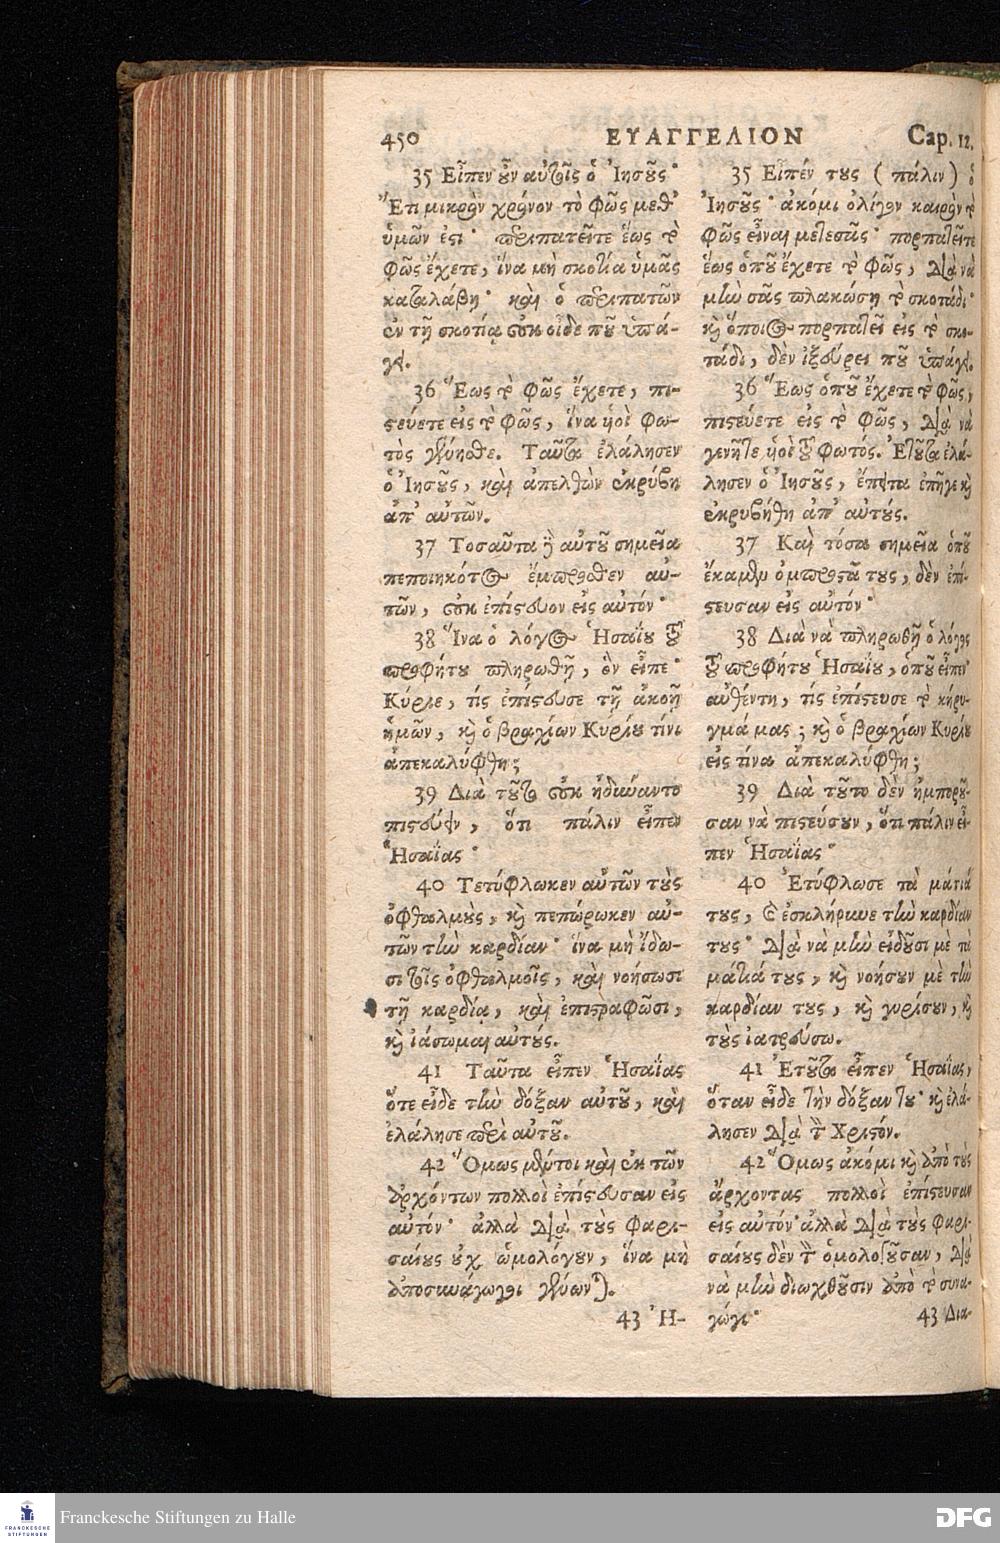 450
ΕΥΑΓΓΕΛΙΟΝ
Cap. 12.
35 Εἶπεν οὖν αὐτοῖς ὁ Ἰησοῦς·
Ἔτι μικρὸν χρόνον τὸ φῶς μεθ'
ὑμῶν ἐστι· περιπατεῖτε ἕως τὸ
φῶς ἔχετε, ἵνα μὴ σκοτία ὑμᾶς
καταλάβῃ· καὶ ὁ περιπατῶν
ἐν τῇ σκοτίᾳ οὐκ οἶδε ποῦ ὑπά-
γει.
36 Ἕως τὸ φῶς ἔχετε, πι-
στεύετε εἰς τὸ φῶς, ἵνα υἱοὶ φω-
τὸς γένησθε. Ταῦτα ἐλάλησεν
ὁ Ἰησοῦς, καὶ ἀπελθὼν ἐκρύβη
ἀπ' αὐτῶν.
37 Τοσαῦτα δὲ αὐτοῦ σημεῖα
πεποιηκότος ἔμπροσθεν αὐ-
τῶν, οὐκ ἐπίστευον εἰς αὐτόν·
38 Ἵνα ὁ λόγος Ἡσαΐου τοῦ
προφήτου πληρωθῇ, ὃν εἶπε·
Κύριε, τίς ἐπίστευσε τῇ ἀκοῇ
ἡμῶν, καὶ ὁ βραχίων Κυρίου τίνι
ἀπεκαλύφθη;
39 Διὰ τοῦτο οὐκ ἠδύναντο
πιστεύειν, ὅτι πάλιν εἶπεν
Ἡσαΐας·
40 Τετύφλωκεν αὐτῶν τοὺς
ὀφθαλμοὺς, καὶ πεπώρωκεν αὐ-
τῶν τὴν καρδίαν· ἵνα μὴ ἴδω-
σι τοῖς ὀφθαλμοῖς, καὶ νοήσωσι
τῇ καρδίᾳ, καὶ ἐπιστραφῶσι,
καὶ ἰάσωμαι αὐτούς.
41 Ταῦτα εἶπεν Ἡσαΐας
ὅτε εἶδε τὴν δόξαν αὐτοῦ, καὶ
ἐλάλησε περὶ αὐτοῦ.
42 Ὅμως μέντοι καὶ ἐκ τῶν
ἀρχόντων πολλοὶ ἐπίστευσαν εἰς
αὐτόν· ἀλλὰ διὰ τοὺς Φαρι-
σαίους οὐχ ὡμολόγουν, ἵνα μὴ
ἀποσυνάγωγοι γένωνται.
43 Ἠ-
35 Εἶπέν τους (πάλιν) ὁ
Ἰησοῦς· ἀκόμι ὀλίγον καιρὸν τὸ
φῶς εἶναι μετεσᾶς· πορπατεῖτε
ἕως ὁποῦ ἔχετε τὸ φῶς, διὰ νὰ
μὴν σᾶς πλακώσῃ τὸ σκοτάδι·
καὶ ὅποιος πορπατεῖ εἰς τὸ σκο-
τάδι, δὲν ἰξεύρει ποῦ ὑπάγει.
36 Ἕως ὁποῦ ἔχετε τὸ φῶς,
πιστεύετε εἰς τὸ φῶς, διὰ νὰ
γενῆτε υἱοὶ τοῦ φωτός. Ἐτοῦτα ἐλά-
λησεν ὁ Ἰησοῦς, ἔπειτα ἐπῆγε καὶ
ἐκρυβήθη ἀπ' αὐτούς.
37 Καὶ τόσα σημεῖα ὁποῦ
ἔκαμεν ὀμπροστά τους, δὲν ἐπί-
στευσαν εἰς αὐτόν·
38 Διὰ νὰ πληρωθῇ ὁ λόγος
τοῦ προφήτου Ἡσαΐου, ὁποῦ εἶπεν·
αὐθέντη, τίς ἐπίστευσε τὸ κήρυ-
γμά μας; καὶ ὁ βραχίων Κυρίου
εἰς τίνα ἀπεκαλύφθη;
39 Διὰ τοῦτο δὲν ἠμποροῦ-
σαν νὰ πιστεύσουν, ὅτι πάλιν εἶ-
πεν Ἡσαΐας·
40 Ἐτύφλωσε τὰ μάτιά
τους, καὶ ἐσκλήρωνε τὴν καρδίαν
τους· διὰ νὰ μὴν εἰδοῦσι μὲ τὰ
μάτιά τους, καὶ νοήσουν μὲ τὴν
καρδίαν τους, καὶ γυρίσουν, καὶ
τοὺς ἰατρεύσω.
41 Ἐτοῦτα εἶπεν Ἡσαΐας,
ὅταν εἶδε τὴν δόξαν του· καὶ ἐλά-
λησεν διὰ τὸν Χριστόν.
42 Ὅμως ἀκόμι καὶ ἀπὸ τοὺς
ἄρχοντας πολλοὶ ἐπίστευσαν
εἰς αὐτόν· ἀλλὰ διὰ τοὺς Φαρι-
σαίους δὲν τὸν ὁμολογοῦσαν, διὰ
νὰ μὴν διωχθοῦσιν ἀπὸ τὸ συνα-
γώγι·
43 Δια-
Franckesche Stiftungen zu Halle
FRANCKESCHE
STIFTUNGEN
DFG